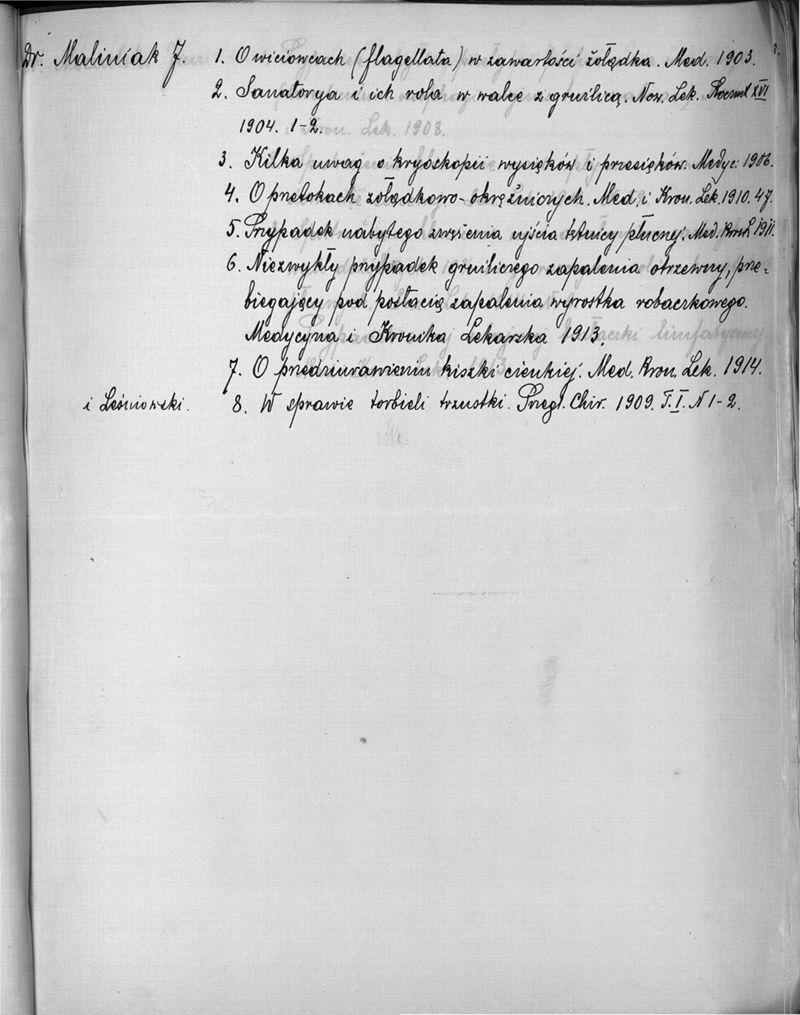 Dr. Maliniak J. 1. O wiciowcach (flagellata) w zawartości żołądka. Med. 1903.
2. Sanatorya i ich rola w walce z gruźlicą. Now. Lek. Rocznik XVI
1904. 1-2.
3. Kilka uwag o kryoskopii wysięków i przesięków. Medyc. 1906.
4. O przetokach żołądkowo-okrężnicowych. Med. i Kron. Lek. 1910. 47.
5. Przypadek nabytego zwężenia ujścia tętnicy płucnej. Med. Kron. L. 1911.
6. Niezwykły przypadek gruźliczego zapalenia otrzewny, prze-
biegający pod postacią zapalenia wyrostka robaczkowego.
Medycyna i Kronika Lekarska 1913.
7. O przedziurawieniu kiszki cienkiej. Med. Kron. Lek. 1914.
i Leśniowski. 8. W sprawie torbieli trzustki. Przegl. Chir. 1909. T. I. N 1-2.